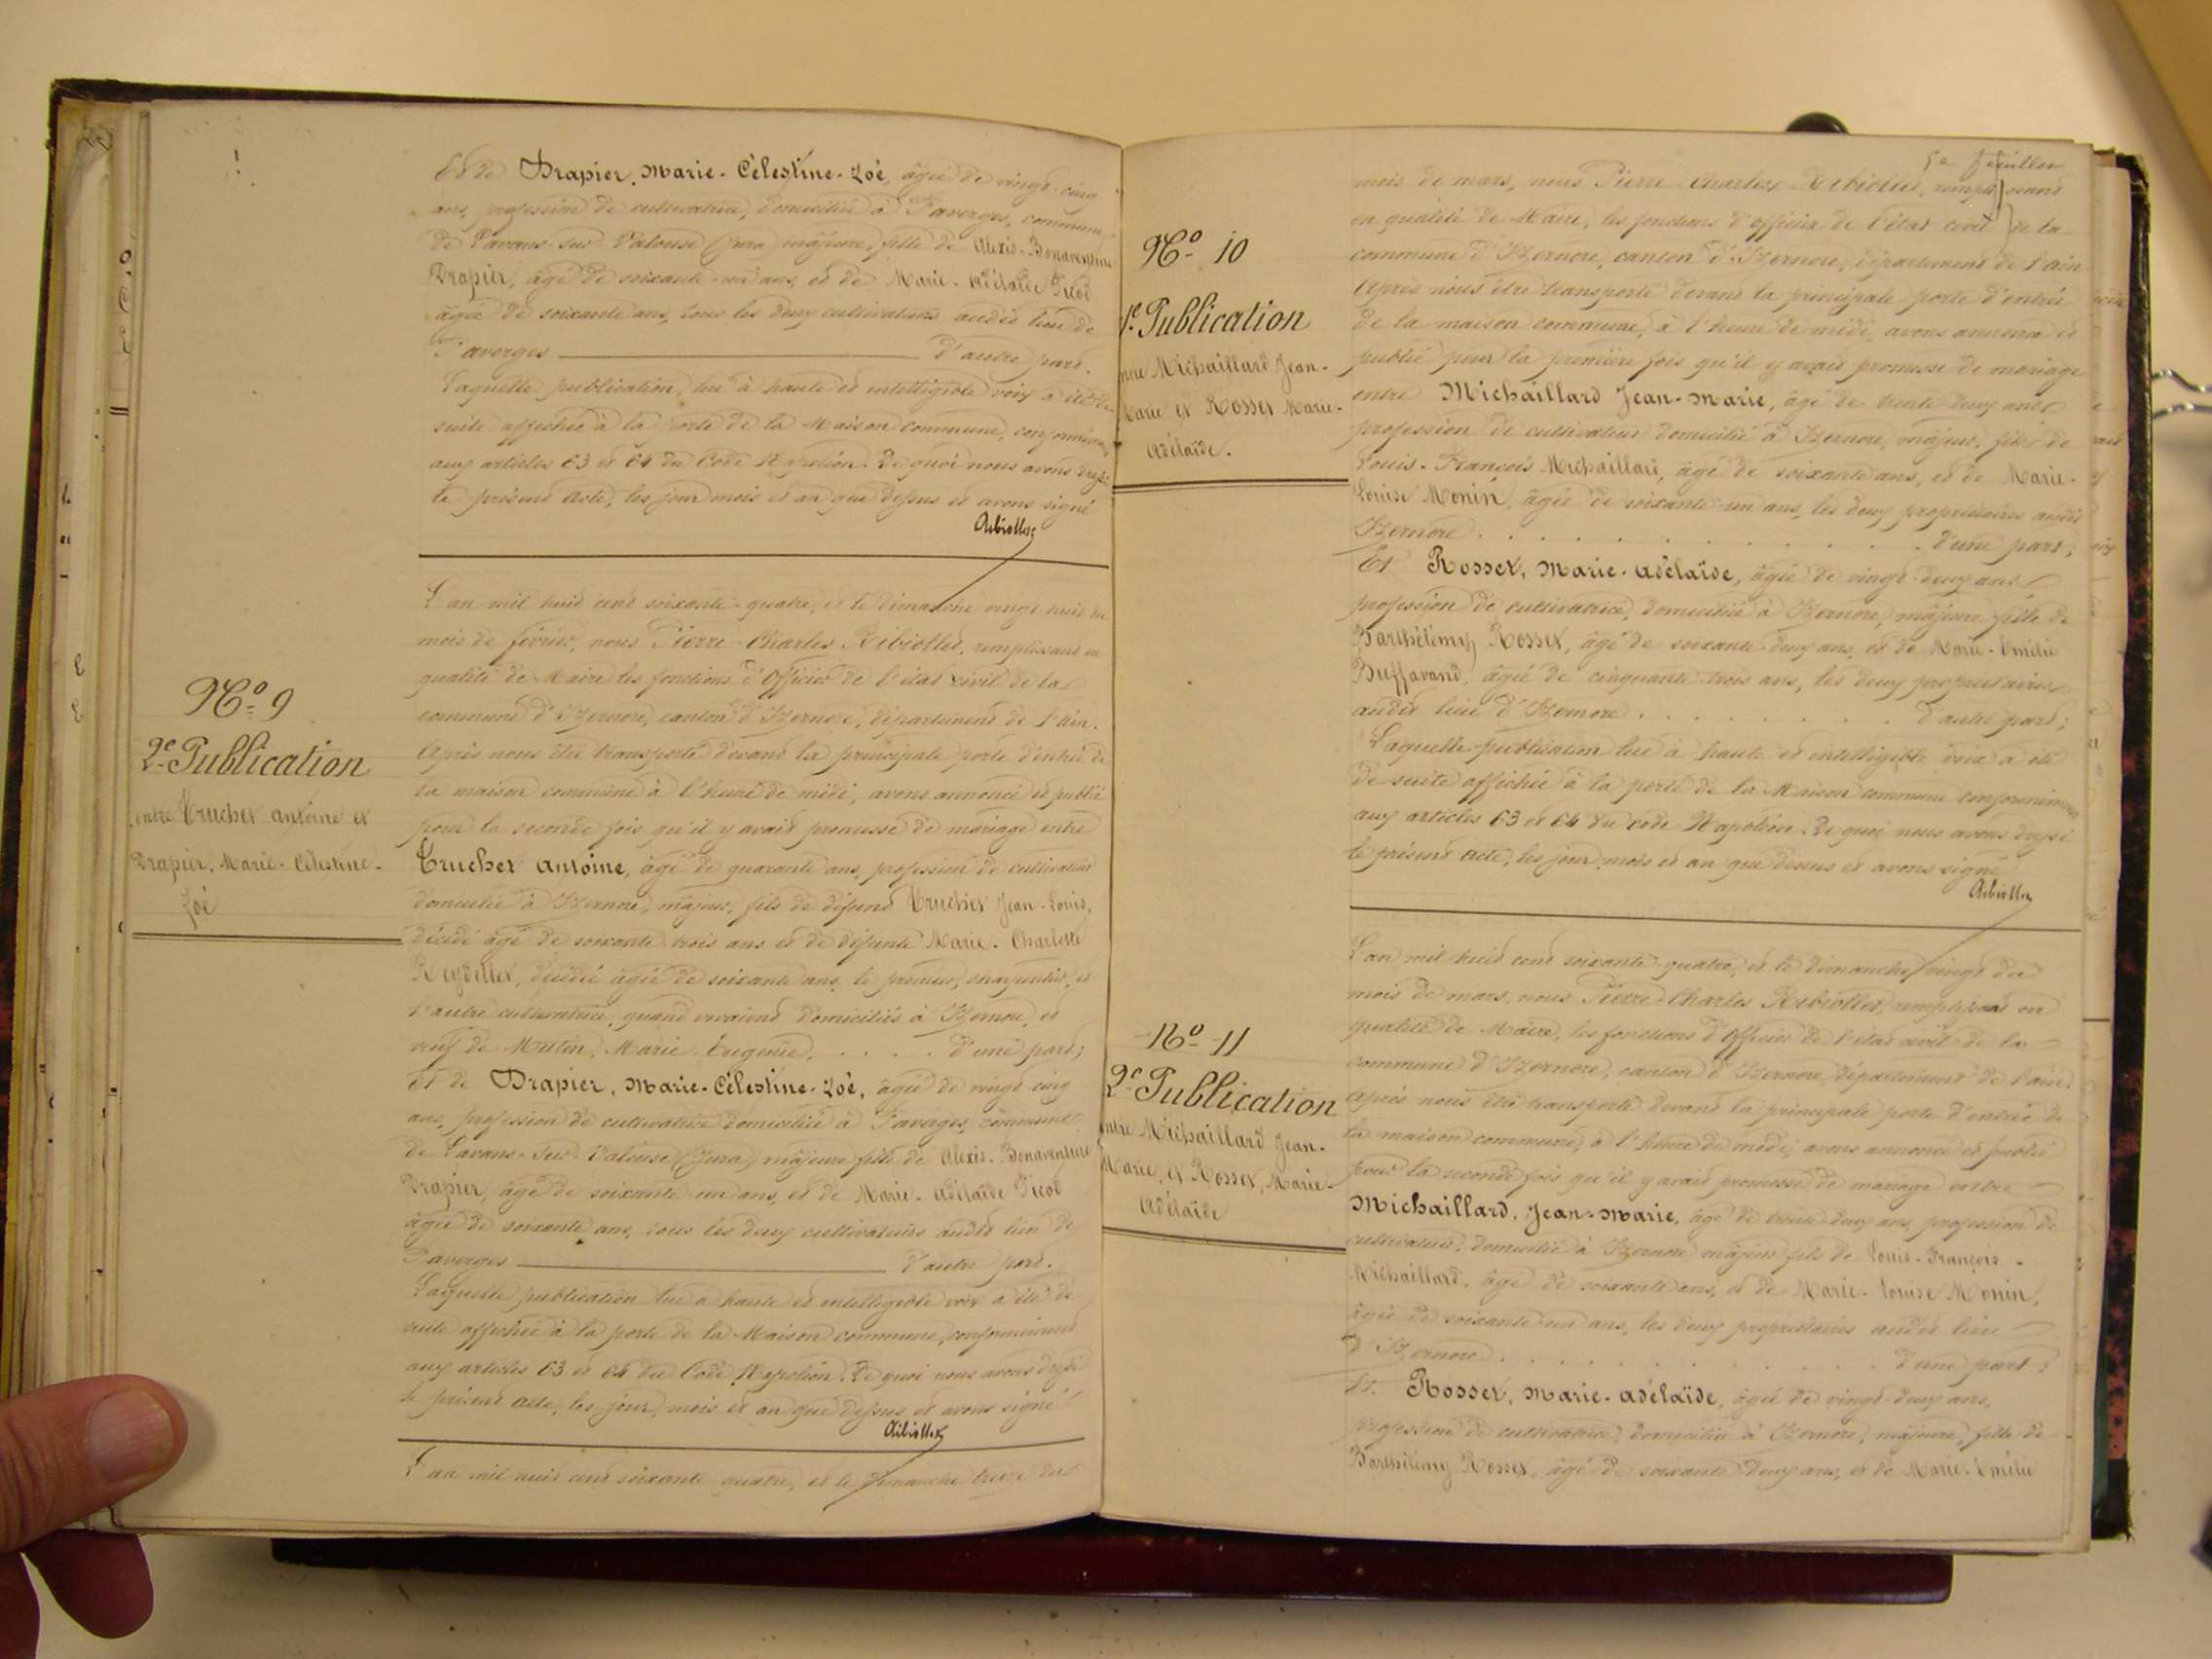 Et de Drapier, Marie-Célestine-Zoé, âgée de vingt-cinq
ans, profession de cultivatrice, domiciliée à Faverges, commune
de Lavans-sur-Valouse (Jura) majeure, fille de Alexis-Bonaventure
Drapier, âgé de soixante-un ans, et de Marie-Adélaïde Picod
âgée de soixante ans, tous les deux cultivateurs audit lieu de
Faverges d'autre part.
Laquelle publication, lue à haute et intelligible voix a été de
suite affichée à la porte de la Maison commune, conformément
aux articles 63 et 64 du Code Napoléon. De quoi nous avons dressé
le présent acte, les jour mois et an que dessus et avons signé
Ribiollet
Nº 9
2e Publication
entre Truchet Antoine et
Drapier, Marie-Célestine-
Zoé
L'an mil huit cent soixante-quatre, et le dimanche vingt-huit du
mois de février, nous Pierre-Charles Ribiollet, remplissant en
qualité de Maire les fonctions d'Officier de l'état civil de la
commune d'Izernore, canton d'Izernore, département de l'Ain.
Après nous être transporté devant la principale porte d'entrée de
la maison commune à l'heure de midi, avons annoncé et publié
pour la seconde fois qu'il y avait promesse de mariage entre
Truchet Antoine, âgé de quarante ans, profession de cultivateur
domicilié à Izernore, majeur, fils de défunt Truchet Jean-Louis,
décédé âgé de soixante trois ans et de défunte Marie-Charlotte
Reydellet, décédée âgée de soixante ans, le premier, charpentier, et
l'autre cultivatrice, quand vivaient domiciliés à Izernore, et
veuf de Mutin, Marie Eugénie, . . . . d'une part;
Et de Drapier, Marie-Célestine-Zoé, âgée de vingt-cinq
ans, profession de cultivatrice domiciliée à Faverges, commune
de Lavans-sur-Valouse (Jura) majeure fille de Alexis-Bonaventure
Drapier, âgé de soixante-un ans, et de Marie-Adélaïde Picod
âgée de soixante ans, tous les deux cultivateurs audit lieu de
Faverges d'autre part.
Laquelle publication lue à haute et intelligible voix a été de
suite affichée à la porte de la Maison commune, conformément
aux articles 63 et 64 du Code Napoléon. De quoi nous avons dressé
le présent acte, les jour, mois et an que dessus et avons signé
Ribiollet
L'an mil huit cent soixante quatre, et le dimanche treize du
5e feuillet
Nº 10
1e Publication
entre Michaillard Jean-
Marie et Rosset Marie-
Adélaïde.
mois de mars, nous Pierre Charles Ribiollet, remplissant
en qualité de Maire, les fonctions d'officier de l'état civil de la
commune d'Izernore, canton d'Izernore, département de l'Ain
Après nous être transporté devant la principale porte d'entrée
de la maison commune, à l'heure de midi, avons annoncé et
publié pour la première fois qu'il y avait promesse de mariage
entre Michaillard Jean-Marie, âgé de trente-deux ans
profession de cultivateur domicilié à Izernore, majeur, fils de
Louis-François Michaillard, âgé de soixante ans, et de Marie-
Louise Monin, âgée de soixante-un ans, les deux propriétaires audit
Izernore . . . . . . . . . . . d'une part;
Et Rosset, Marie-Adélaïde, âgée de vingt-deux ans
profession de cultivatrice, domiciliée à Izernore, majeure fille de
Barthélemy Rosset, âgé de soixante-deux ans, et de Marie-Emélie
Buffavand, âgée de cinquante trois ans, les deux propriétaires
audit lieu d'Izernore . . . . . . . . d'autre part;
Laquelle publication lue à haute et intelligible voix a été
de suite affichée à la porte de la Maison commune conformément
aux articles 63 et 64 du code Napoléon. De quoi nous avons dressé
le présent acte, les jour, mois et an que dessus et avons signé
Ribiollet
Nº 11
2e Publication
entre Michaillard Jean-
Marie, et Rosset, Marie-
Adélaïde
L'an mil huit cent soixante-quatre, et le dimanche vingt du
mois de mars, nous Pierre-Charles Ribiollet, remplissant en
qualité de Maire, les fonctions d'Officier de l'état civil de la
commune d'Izernore, canton d'Izernore, département de l'ain.
Après nous être transporté devant la principale porte d'entrée de
la maison commune, à l'heure de midi, avons annoncé et publié
pour la seconde fois qu'il y avait promesse de mariage entre
Michaillard, Jean-Marie, âgé de trente deux ans, profession de
cultivateur, domicilié à Izernore majeur fils de Louis-François-
Michaillard, âgé de soixante ans, et de Marie-Louise Monin,
âgée de soixante-un ans, les deux propriétaires audit lieu
d'Izernore . . . . . . . . . . . d'une part;
Et. Rosset, Marie-Adélaïde, âgée de vingt-deux ans,
profession de cultivatrice, domiciliée à Izernore, majeure, fille de
Barthélemy Rosset, âgé de soixante-deux ans, et de Marie-Emélie